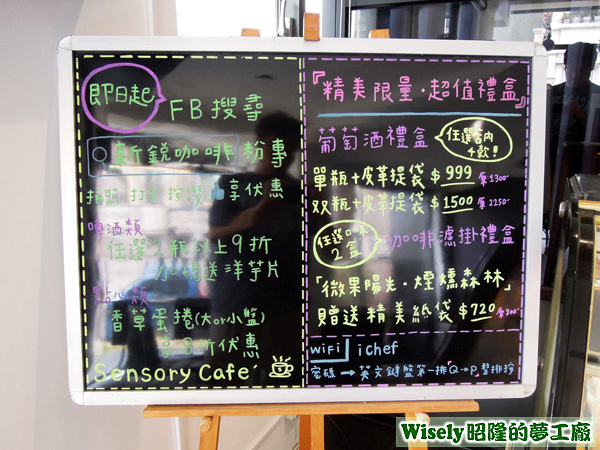 即日起
FB搜尋
新銳咖啡 粉專
拍照 打卡 按讚 享優惠
啤酒類
任選2瓶以上9折
加贈送洋芋片
點心類
香草蛋捲(大or小盤)
享 折優惠
Sensory Café
『精美限量·超值禮盒』
葡萄酒禮盒
任選店內
4款!
單瓶+皮革提袋 $999 原1300
双瓶+皮革提袋 $1500 原2250
任選口味
2盒
咖啡濾掛禮盒
「微果陽光·煙燻森林」
贈送精美紙袋 $720 原800
WiFi ichef
密碼 → 英文鍵盤第一排Q→P,整排按
Wisely昭隆的夢工廠